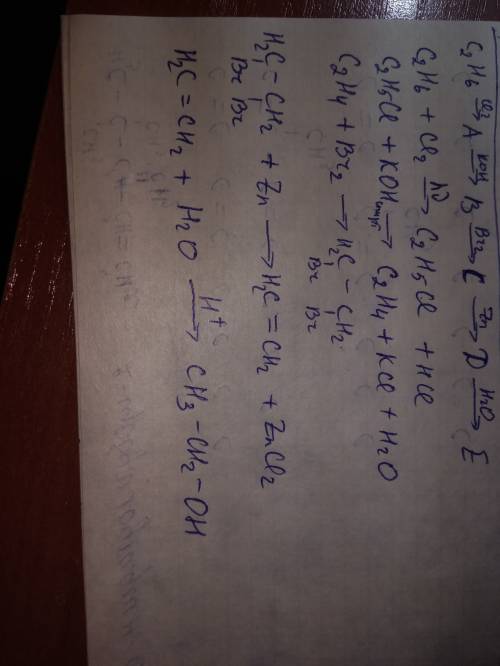 C₂H₆ →Cl₂ A →KOH B →Br₂ C →Zn D →H₂O E
C₂H₆ + Cl₂ → C₂H₅Cl + HCl
C₂H₅Cl + KOH → C₂H₄ + KCl + H₂O
C₂H₄ + Br₂ → H₂C – CH₂
Br Br
H₂C – CH₂ + Zn → H₂C = CH₂ + ZnCl₂
Br Br
H₂C = CH₂ + H₂O →H⁺ CH₃ – CH₂ – OH